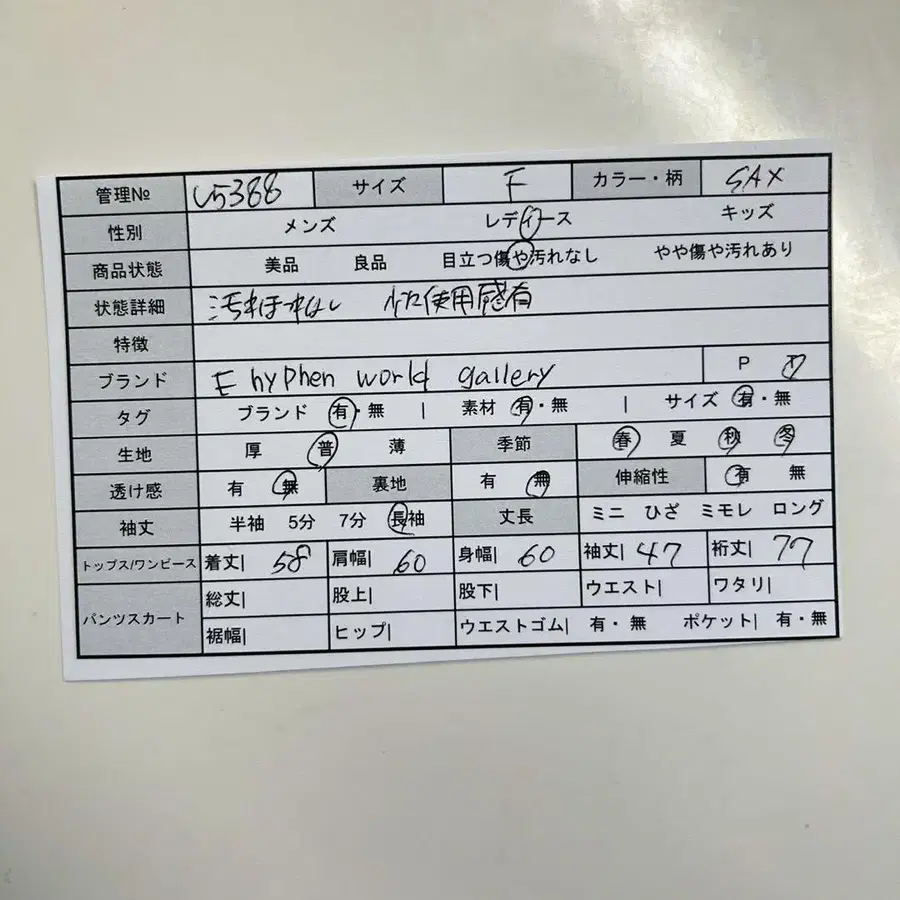 管理№ U5388 サイズ F カラー・柄 SAX
性別 メンズ レディース キッズ
商品状態 美品 良品 目立つ傷や汚れなし やや傷や汚れあり
状態詳細 汚れほつれなし 使用感有
特徴
ブランド E hyphen world gallery P
タグ ブランド 有・無 | 素材 有・無 | サイズ 有・無
生地 厚 普 薄 季節 春 夏 秋 冬
透け感 有 無 裏地 有 無 伸縮性 有 無
袖丈 半袖 5分 7分 長袖 丈長 ミニ ひざ ミモレ ロング
トップス/ワンピース 着丈| 58 肩幅| 60 身幅| 60 袖丈| 47 裄丈| 77
パンツスカート 総丈| 股上| 股下| ウエスト| ワタリ|
裾幅| ヒップ| ウエストゴム| 有・無 ポケット| 有・無